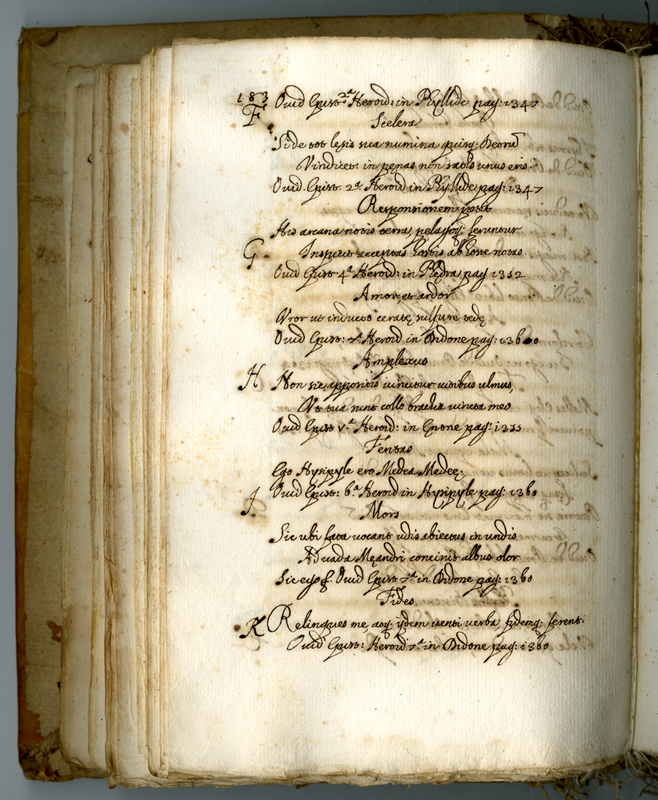 183 Ouid Epist. 2ª Heroid: in Phyllide pag: 1347
F
Scelera
Si de tot lęsis sua numina quisq; Deorū
Vindicet: in pęnas non satis unus eris.
Ouid Epist: 2ª Heroid in Phyllide pag: 1347
Responsionem petit
His arcana notis terra, pelagoq; feruntur
G Inspicit acceptas hostis ab hoste notas.
Ouid Epist 4ª Heroid: in Phędra pag 1352
Amor, et ardor
Vror ut inducto ceratę sulfure tędę
Ouid Epist: 7ª Heroid in Didone pag: 1360
Amplexus
H Non sic appositis uincitur uitibus ulmus,
Vt tua sunt collo brachia uincta meo
Ouid Epist Vª Heroid: in Enone pag: 1355
Ego Hysipyle ero Medea Medeę:
Ouid Epist: 6ª Heroid in Hysipyle pag: 1360
I
Mors
Sic ubi fata uocant udis abiectus in undis
Ad uada Męandri concinit albus olor
Sic ego Ouid Epist 7ª in Didone pag: 1360
Fides
K Relinques me atq; ijdem uenti uerba, fidemq; ferent.
Ouid Epist: Heroid 7ª in Didone pag: 1360